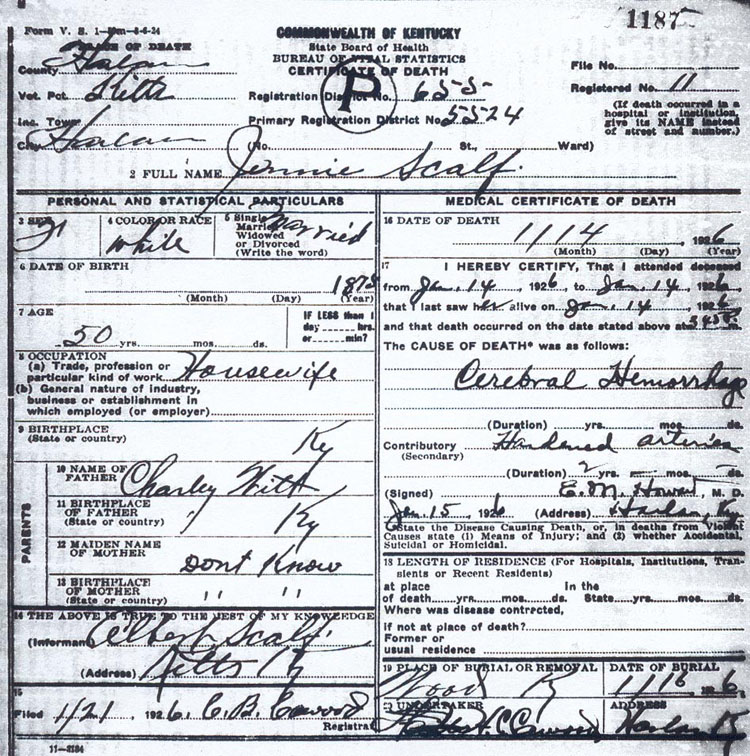 1187
Form V. S. 1-50m-8-6-24
COMMONWEALTH OF KENTUCKY
State Board of Health
BUREAU OF VITAL STATISTICS
CERTIFICATE OF DEATH
PLACE OF DEATH
County Harlan
Vot. Pct. Kitts
Inc. Town
City Harlan
P
Registration District No. 655
Primary Registration District No. 5524
(No. St., Ward)
File No.
Registered No. 11
(If death occurred in a
hospital or institution,
give its NAME instead
of street and number.)
2 FULL NAME Jennie Scalf.
PERSONAL AND STATISTICAL PARTICULARS
3 SEX
4 COLOR OR RACE
white
5 Single
Married
Widowed
or Divorced
(Write the word)
Married
6 DATE OF BIRTH
1875
(Month) (Day) (Year)
7 AGE
50 yrs. mos. ds.
IF LESS than 1
day hrs.
or min?
8 OCCUPATION
(a) Trade, profession or
particular kind of work Housewife
(b) General nature of industry,
business or establishment in
which employed (or employer)
9 BIRTHPLACE
(State or country) Ky
PARENTS
10 NAME OF
FATHER Charley Witt
11 BIRTHPLACE
OF FATHER
(State or country) Ky
12 MAIDEN NAME
OF MOTHER Dont Know
13 BIRTHPLACE
OF MOTHER
(State or country) " "
14 THE ABOVE IS TRUE TO THE BEST OF MY KNOWLEDGE
(Informant Albert Scalf.
(Address) Kitts Ky
15
Filed 1/21 1926. C. B. Cawood
Registrar
11-3184
MEDICAL CERTIFICATE OF DEATH
16 DATE OF DEATH
1 14 , 1926
(Month) (Day) (Year)
17 I HEREBY CERTIFY, That I attended deceased
from Jan. 14 1926, to Jan. 14 1926
that I last saw her alive on Jan. 14 1926
and that death occurred on the date stated above at
The CAUSE OF DEATH* was as follows:
Cerebral Hemorrhage
(Duration) yrs. mos. ds.
Contributory Hardened arteries
(Secondary)
(Duration) 2 yrs. mos. ds.
(Signed) E. M. Howard, M. D.
Jan. 15, 1926 (Address) Harlan, Ky
*State the Disease Causing Death, or, in deaths from Violent
Causes state (1) Means of Injury; and (2) whether Accidental,
Suicidal or Homicidal.
18 LENGTH OF RESIDENCE (For Hospitals, Institutions, Tran-
sients or Recent Residents)
at place In the
of death yrs. mos. ds. State yrs. mos. ds.
Where was disease contrrcted,
if not at place of death?
Former or
usual residence
19 PLACE OF BURIAL OR REMOVAL
Wood Ky
DATE OF BURIAL
1 16 1926
20 UNDERTAKER
Cawood
ADDRESS
Harlan Ky